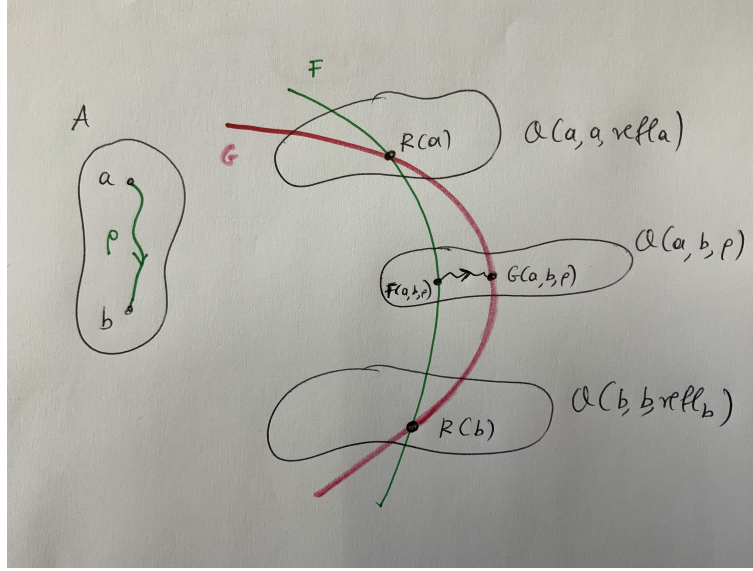 A
a
p
b
F
G
R(a)
Q(a, a, refl a)
F(a,b,p)
G(a,b,p)
Q(a, b, p)
R(b)
Q(b, b, refl b)